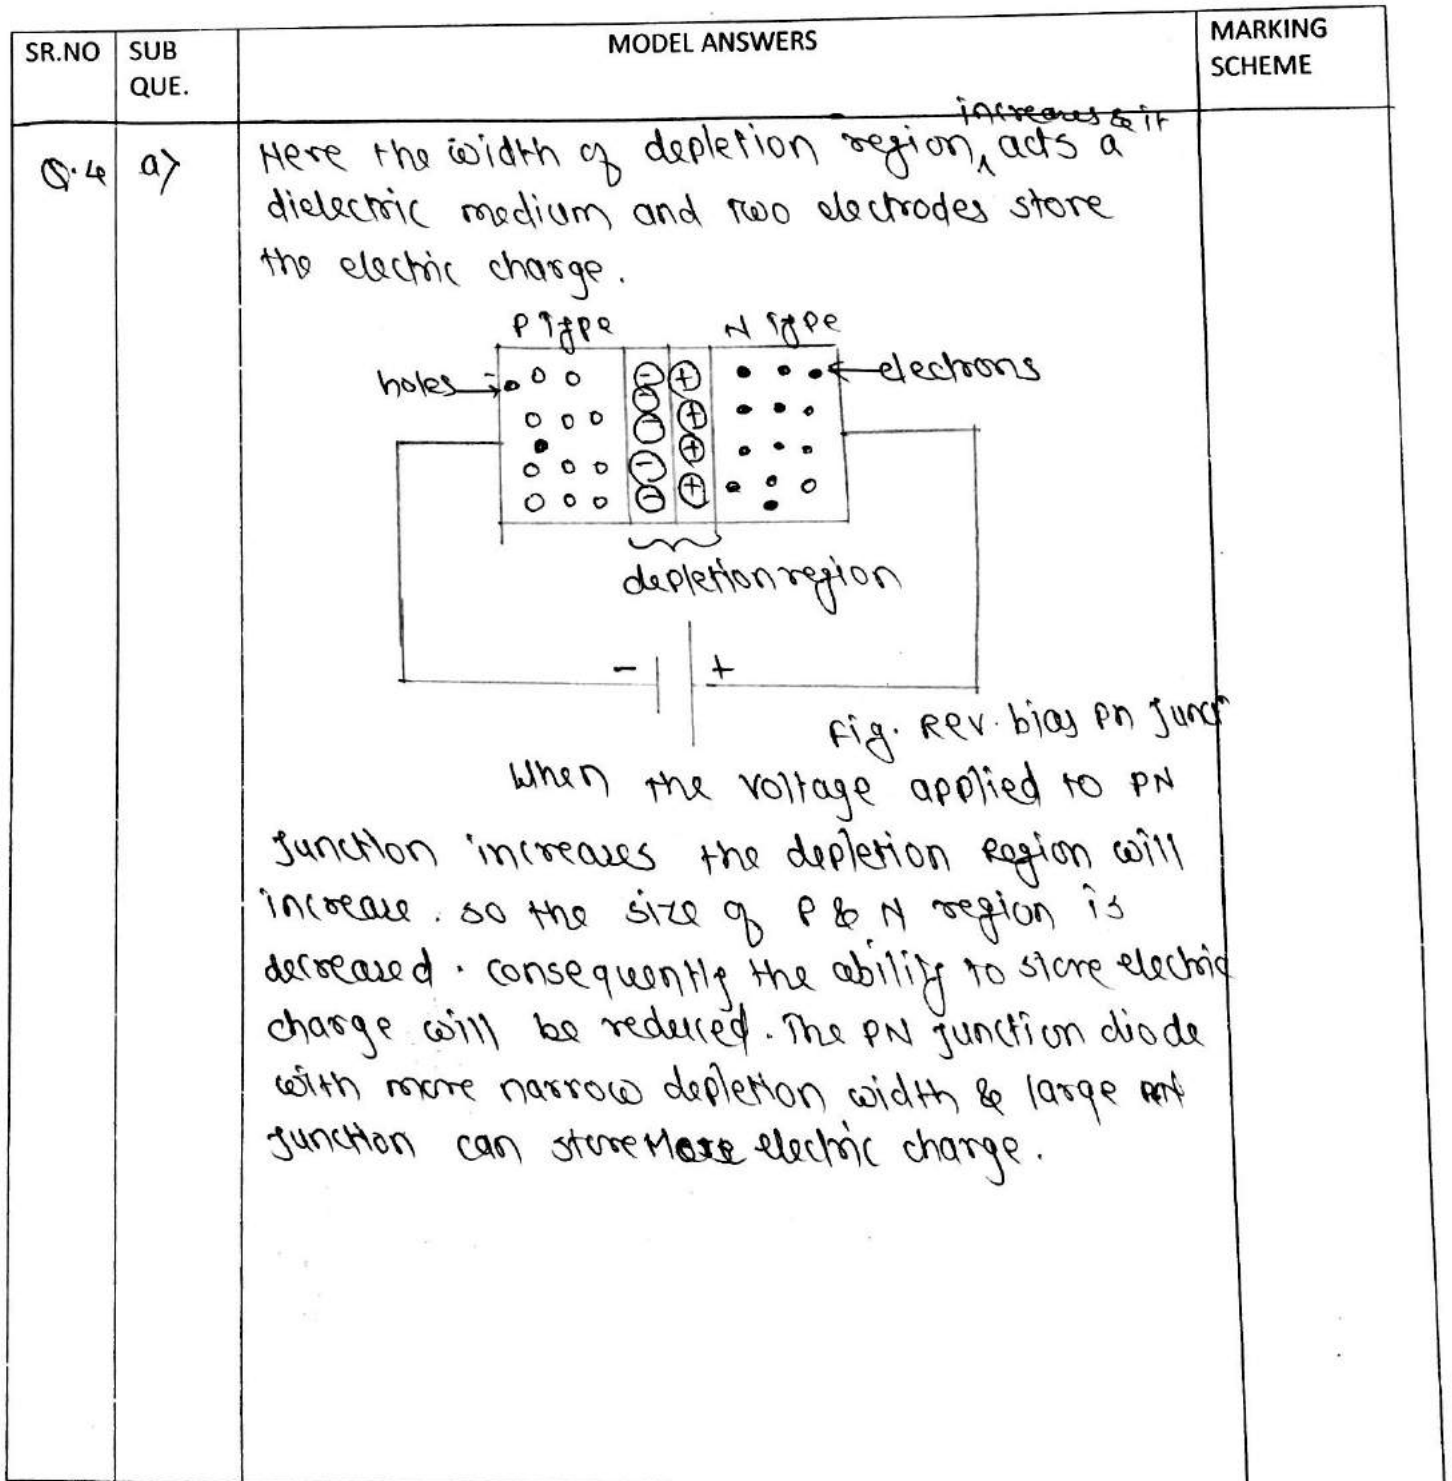 SR.NO SUB QUE. MODEL ANSWERS MARKING SCHEME
increases & it
Q.4 a) Here the width of depletion region, acts a
dielectric medium and two electrodes store
the electric charge.
P Type N Type
holes electrons
depletion region
- +
Fig. Rev. bias Pn Junc
When the voltage applied to PN
Junction increases the depletion Region will
increase. so the size of P & N region is
decreased. consequently the ability to store electric
charge will be reduced. The PN junction diode
with more narrow depletion width & large
junction can store More electric charge.